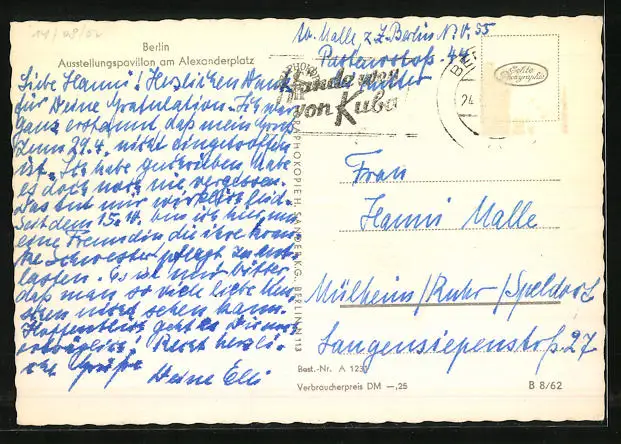 Berlin
Ausstellungspavillon am Alexanderplatz
Liebe Hanni! Herzlichen Dank
für Deine Gratulation. Ich war
ganz erstaunt, daß mein Gruß
zum 29.4. nicht eingetroffen
ist. Ich habe geschrieben habe
es doch noch nie vergessen.
Das tut mir wirklich leid.
Seit dem 15.4. bin ich hier, um
eine Freundin die ihre kran-
ke Schwester pflegt zu ent-
lasten. Es ist nur bitter,
daß man so viele liebe Men-
schen nicht sehen kann.
Hoffentlich geht es Dir noch
erträglich! Recht herzli-
che Grüße
Deine Elli
Malle, z.Z. Berlin N.O. 55
44
Hände weg
von Kuba
24
Echte
Photographie
Frau
Hanni Malle
Mülheim/Ruhr/Speldorf
Langensiepenstoß. 27
GRAPHOKOPIE H. SANDER K.G., BERLIN N 113
Best.-Nr. A 1231
Verbraucherpreis DM —,25
B 8/62